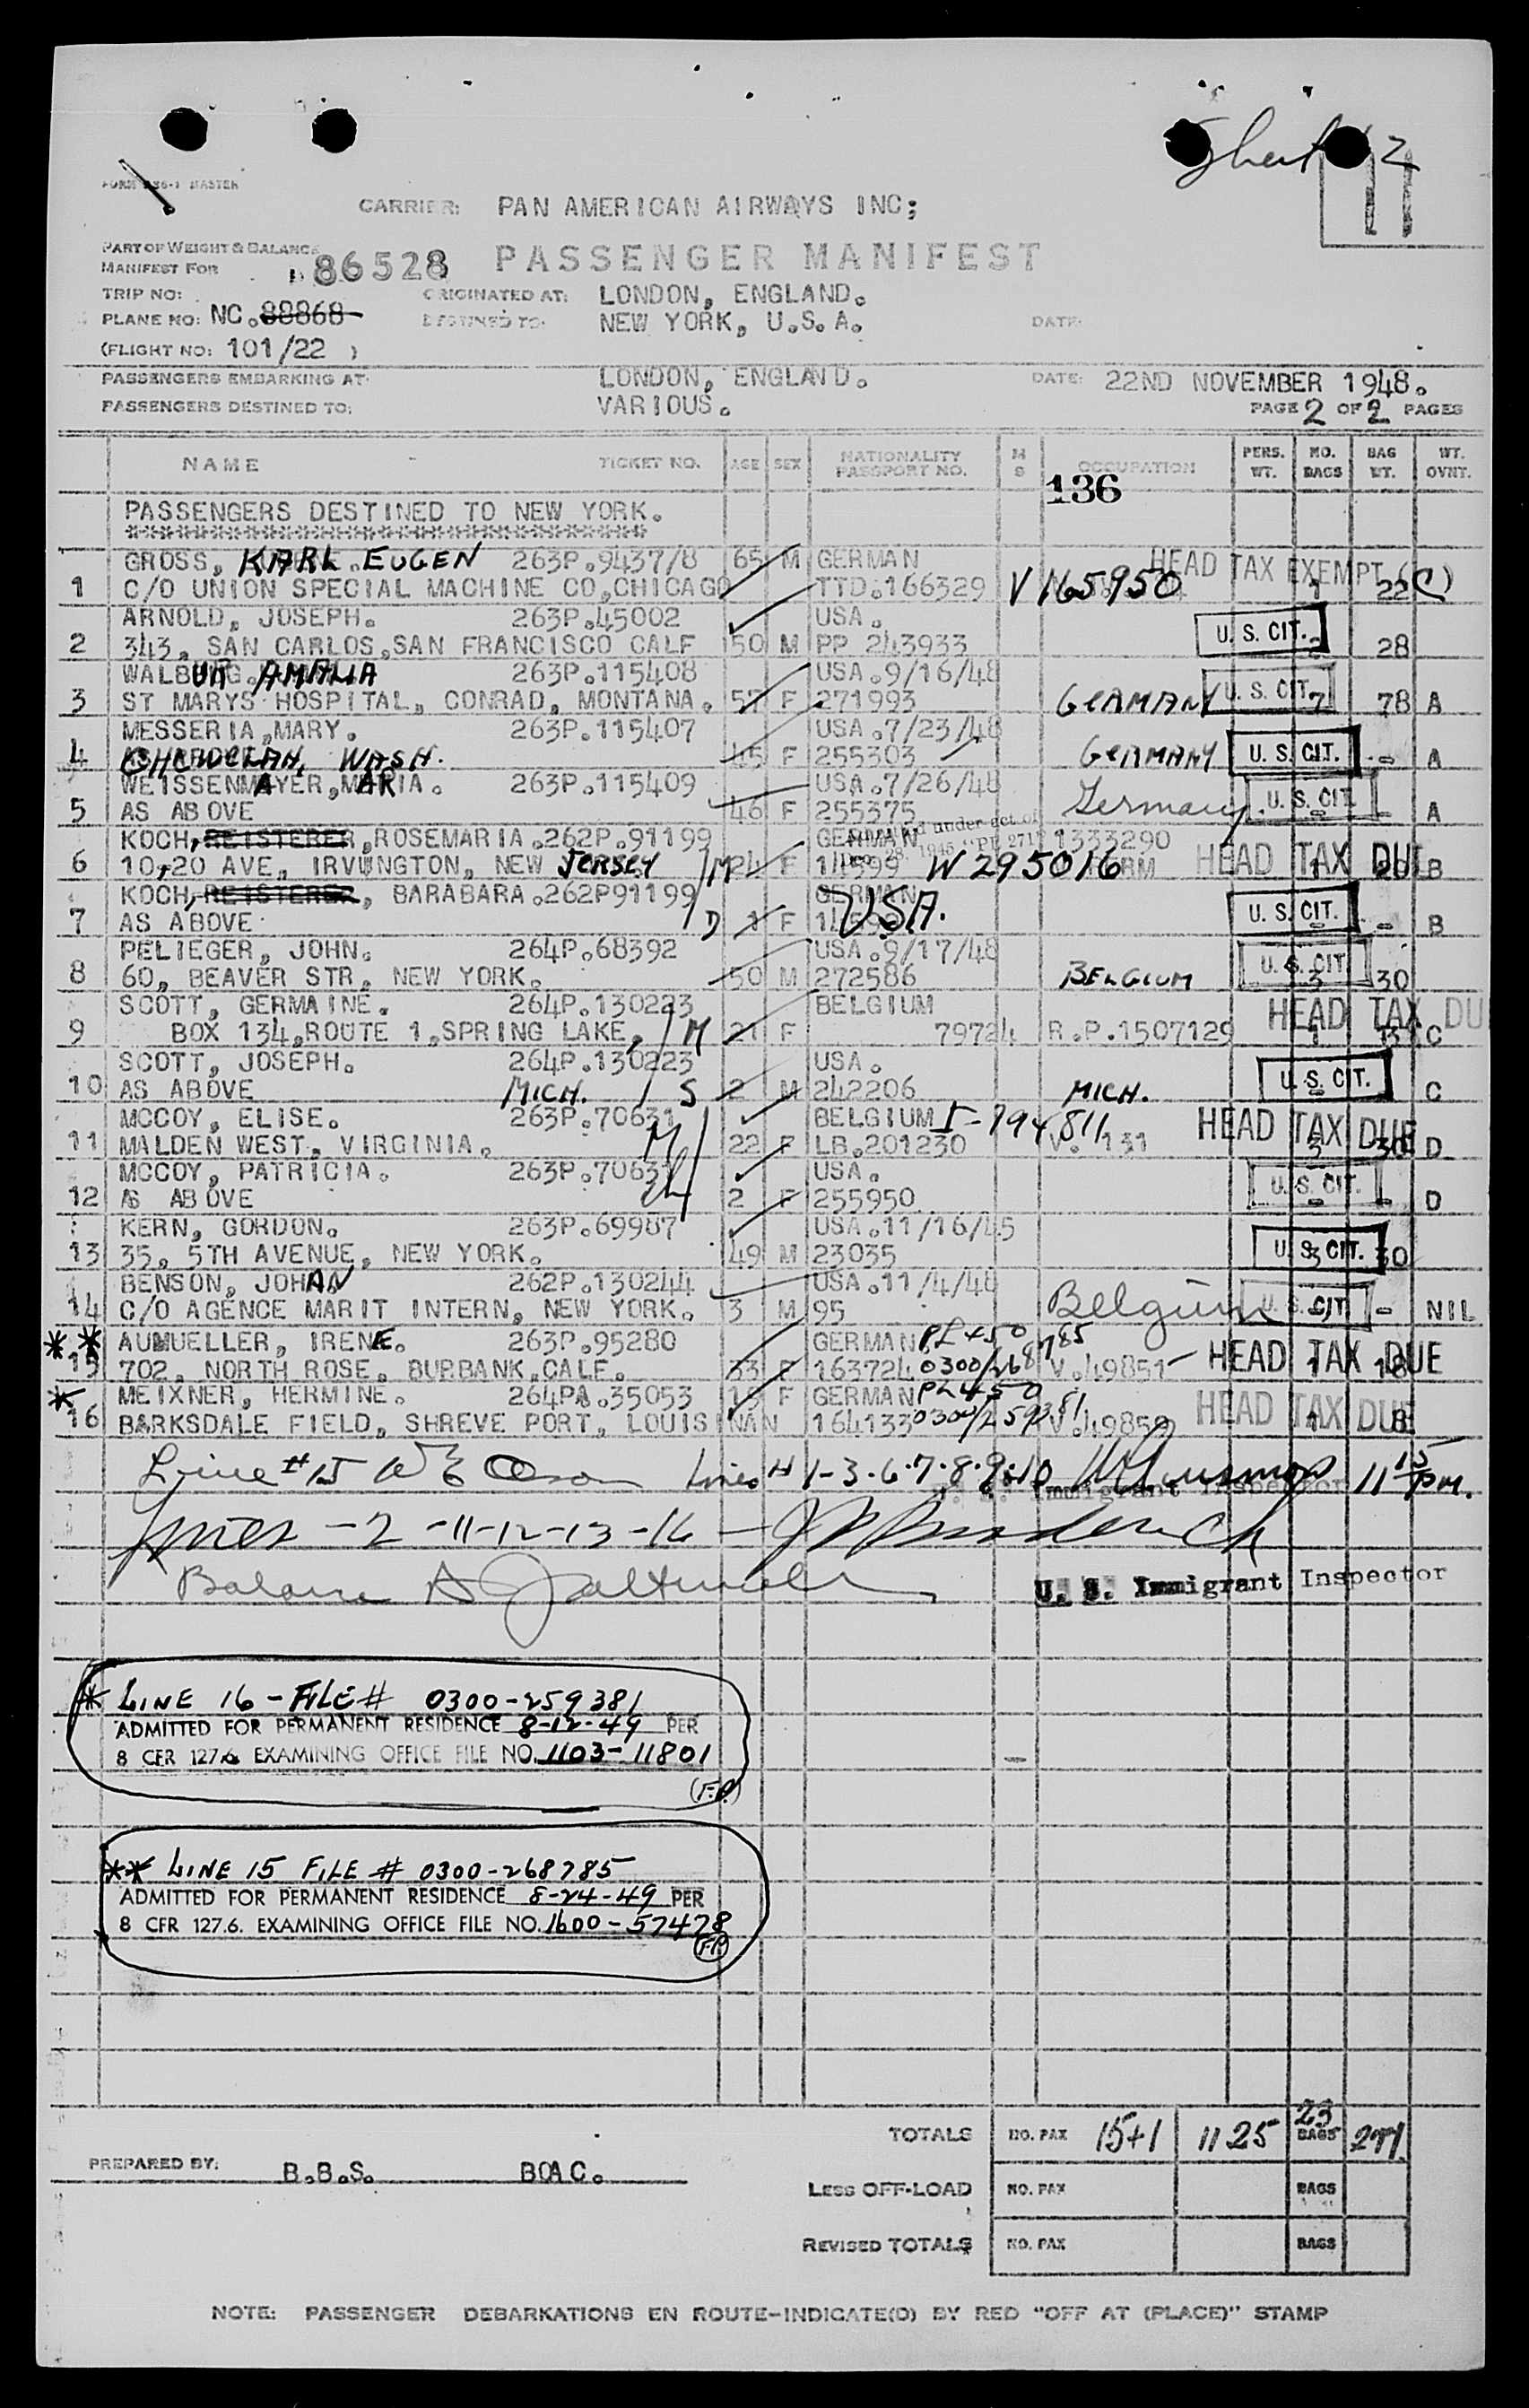 Sheet 2
11
FORM 136-1 MASTER
CARRIER: PAN AMERICAN AIRWAYS INC;
PART OF WEIGHT & BALANCE
MANIFEST FOR 86528 PASSENGER MANIFEST
TRIP NO: ORIGINATED AT: LONDON, ENGLAND.
PLANE NO: NC.88868 DESTINED TO: NEW YORK, U.S.A. DATE:
(FLIGHT NO: 101/22 )
PASSENGERS EMBARKING AT: LONDON, ENGLAND. DATE: 22ND NOVEMBER 1948.
PASSENGERS DESTINED TO: VARIOUS. PAGE 2 OF 2 PAGES
NAME TICKET NO. AGE SEX NATIONALITY PASSPORT NO. M S OCCUPATION PERS. WT. NO. BAGS BAG WT. WT. OVNT.
136
PASSENGERS DESTINED TO NEW YORK.
********************************
GROSS, KARL EUGEN 263P.9437/8 65 M GERMAN HEAD TAX EXEMPT (C)
1 C/O UNION SPECIAL MACHINE CO,CHICAGO TTD.166329 V 165950 1 22
ARNOLD, JOSEPH. 263P.45002 USA. U. S. CIT.
2 343, SAN CARLOS,SAN FRANCISCO CALF 50 M PP 243933 2 28
WALBURG. AMALIA 263P.115408 USA.9/16/48 U. S. CIT.
3 ST MARYS HOSPITAL, CONRAD, MONTANA. 57 F 271993 GERMANY 7 78 A
MESSERIA,MARY. 263P.115407 USA.7/23/48
4 WASH. 45 F 255303 GERMANY U. S. CIT. - A
WEISSENMAYER,MARIA. 263P.115409 USA.7/26/48
5 AS ABOVE 46 F 255375 Germany. U. S. CIT. - A
KOCH, REISTERER,ROSEMARIA.262P.91199 GERMAN 1333290
6 10,20 AVE, IRVUNGTON, NEW JERSEY M 24 F 14599 W 295016 HEAD TAX DUE 1 20 B
KOCH, REISTERER, BARABARA.262P91199 GERMAN USA. U. S. CIT.
7 AS ABOVE D 1 F - B
PELIEGER, JOHN. 264P.68392 USA.9/17/48 U. S. CIT.
8 60, BEAVER STR, NEW YORK. 50 M 272586 BELGIUM 3 30
SCOTT, GERMAINE. 264P.130223 BELGIUM HEAD TAX DU
9 BOX 134,ROUTE 1,SPRING LAKE, M 21 F 79724 R.P.1507129 1 C
SCOTT, JOSEPH. 264P.130223 USA. U. S. CIT.
10 AS ABOVE MICH. S 2 M 242206 MICH. - C
MCCOY, ELISE. 263P.70631 BELGIUM I-794811 HEAD TAX DUE
11 MALDEN WEST, VIRGINIA. M 22 F LB.201230 V. 131 30 D
MCCOY, PATRICIA. 263P.70631 USA. U. S. CIT.
12 AS ABOVE 2 F 255950 - D
KERN, GORDON. 263P.69987 USA.11/16/45
13 35, 5TH AVENUE, NEW YORK. 49 M 23035 U. S. CIT. 3 30
BENSON, JOHAN 262P.130244 USA.11/4/48
14 C/O AGENCE MARIT INTERN, NEW YORK. 3 M 95 Belgium U. S. CIT. - NIL
** AUMUELLER, IRENE. 263P.95280 GERMAN PL 450
15 702, NORTH ROSE, BURBANK,CALF. 33 F 163724 0300/268785 V.49851 HEAD TAX DUE 1 18
* MEIXNER, HERMINE. 264PA.35053 19 F GERMAN PL 450
16 BARKSDALE FIELD, SHREVE PORT, LOUISINAN 164133 0300/259381 V.49859 HEAD TAX DUE 1 8
Line #15 Lines # 1-3-6-7-8-9-10 11 15 PM.
U. S. Immigrant Inspector
Lines -2-11-12-13-16-
Balance
U. S. Immigrant Inspector
* LINE 16 - FILE # 0300-259381
ADMITTED FOR PERMANENT RESIDENCE 8-12-49 PER
8 CFR 127.6 EXAMINING OFFICE FILE NO. 1103-11801
(F.P.)
** LINE 15 FILE # 0300-268785
ADMITTED FOR PERMANENT RESIDENCE 8-24-49 PER
8 CFR 127.6. EXAMINING OFFICE FILE NO. 1600-57478
F.P.
TOTALS NO. PAX 15+1 1125 23 BAGS 271
PREPARED BY: B.B.S. BOAC.
LESS OFF-LOAD NO. PAX BAGS
REVISED TOTALS NO. PAX BAGS
NOTE: PASSENGER DEBARKATIONS EN ROUTE-INDICATE(D) BY RED "OFF AT (PLACE)" STAMP